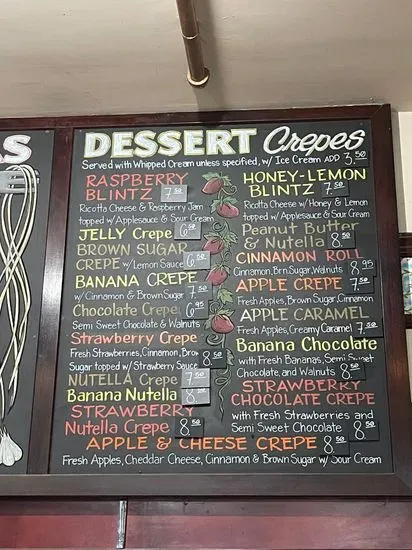 AS
DESSERT Crepes
Served with Whipped Cream unless specified, w/ Ice Cream ADD 3.50
RASPBERRY
BLINTZ 7.50
Ricotta Cheese & Raspberry Jam
topped w/ Applesauce & Sour Cream
JELLY Crepe 6.50
BROWN SUGAR
CREPE w/ Lemon Sauce 6.50
BANANA CREPE
w/ Cinnamon & Brown Sugar 7.50
Chocolate Crepe 6.95
Semi Sweet Chocolate & Walnuts
Strawberry Crepe
Fresh Strawberries, Cinnamon, Brow
Sugar topped w/ Strawberry Sauce 8.50
NUTELLA Crepe 7.50
Banana Nutella 8.50
STRAWBERRY
Nutella Crepe 8.50
HONEY-LEMON
BLINTZ 7.50
Ricotta Cheese w/ Honey & Lemon
topped w/ Applesauce & Sour Cream
Peanut Butter
& Nutella 8.50
CINNAMON ROLL
Cinnamon, Brn. Sugar, Walnuts 8.95
APPLE CREPE 7.50
Fresh Apples, Brown Sugar, Cinnamon
APPLE CARAMEL
Fresh Apples, Creamy Caramel 7.50
Banana Chocolate
with Fresh Bananas, Semi Sweet
Chocolate, and Walnuts 8.50
STRAWBERRY
CHOCOLATE CREPE
with Fresh Strawberries and
Semi Sweet Chocolate 8.50
APPLE & CHEESE CREPE 8.50
Fresh Apples, Cheddar Cheese, Cinnamon & Brown Sugar w/ Sour Cream